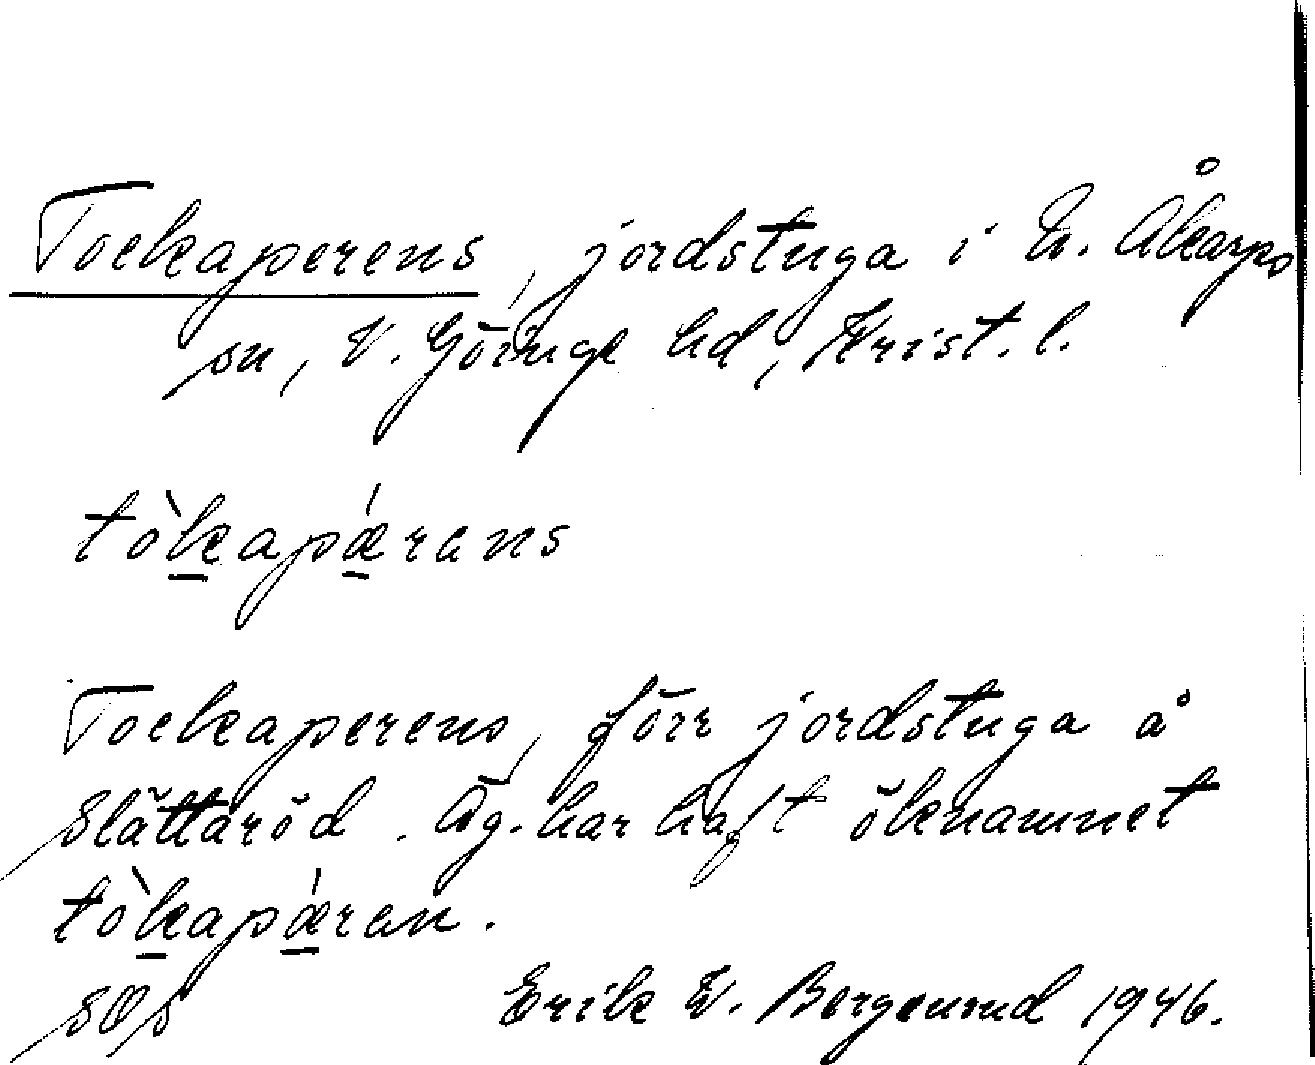 Tockaperens, jordstuga i N. Åkarps
sn, V. Göinge hd, Krist. l.
tòkapǽrans
Tockaperens, förr jordstuga å
Slättaröd. Äg. har haft öknamnet
tòkapǽran.
SOS Erik W. Bergenund 1946.